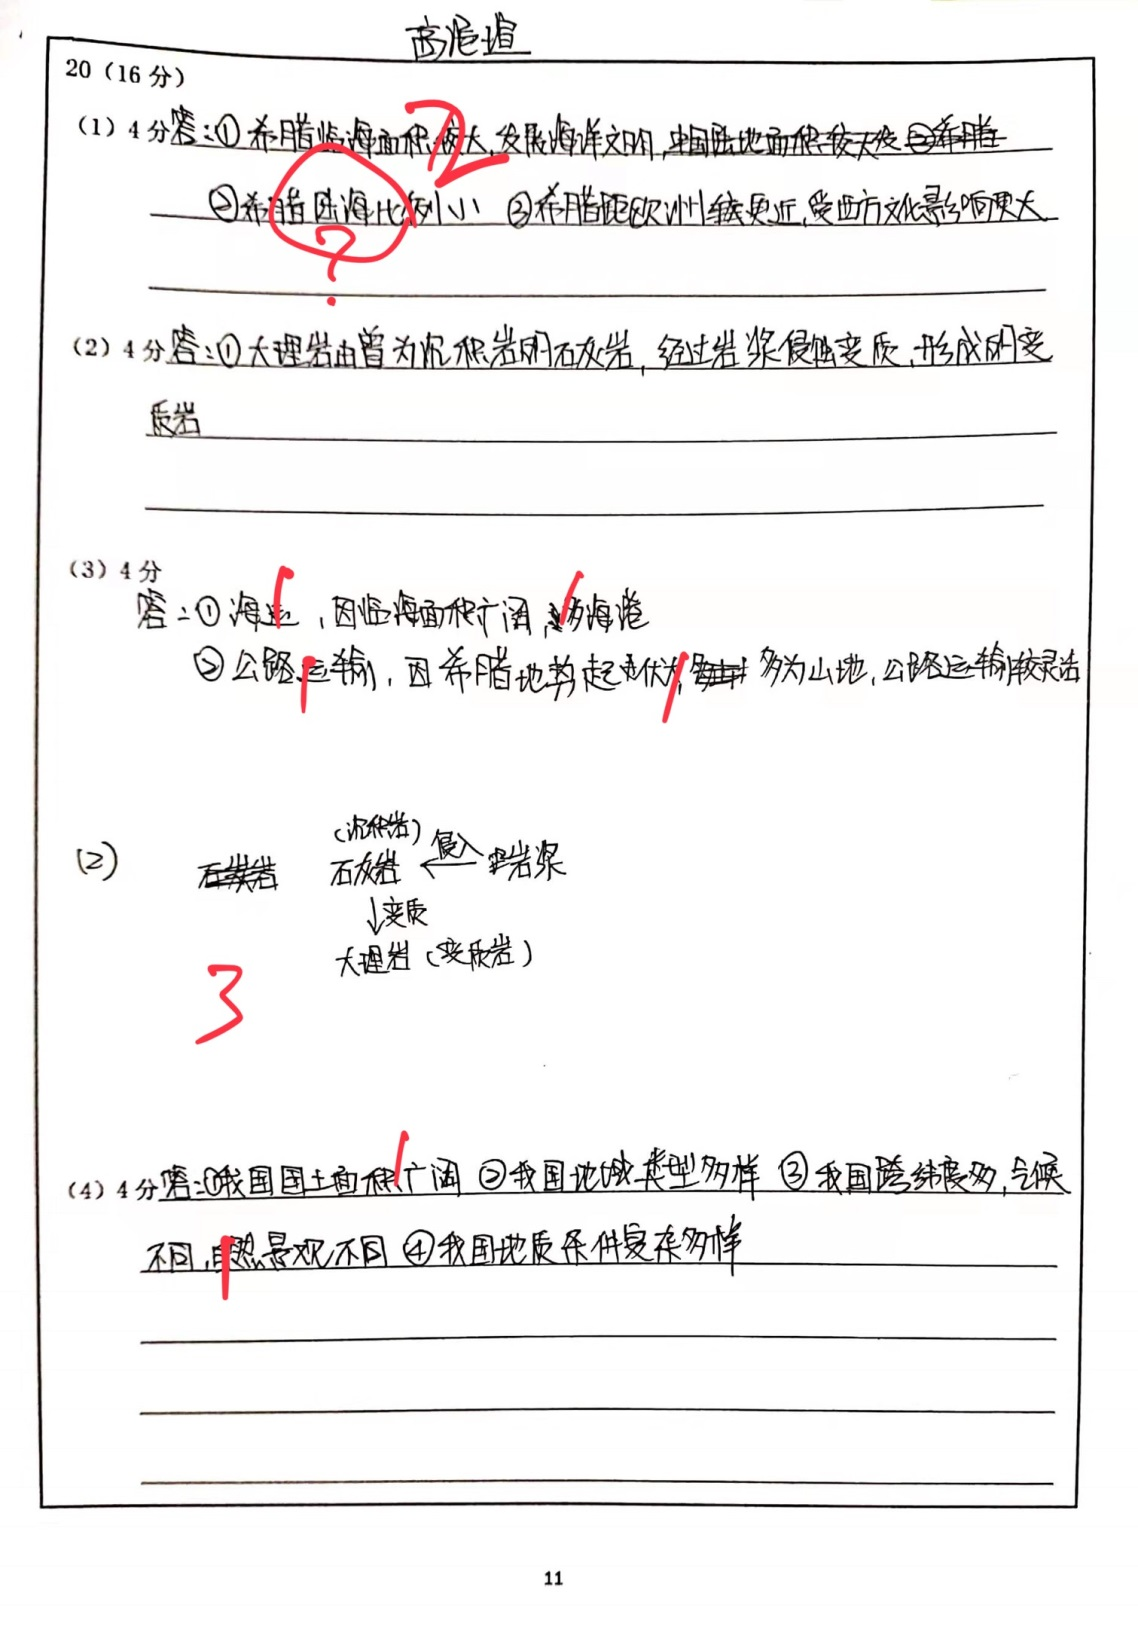 20（16 分）
（1）4 分 答：① 希腊临海面积较大，发展海洋文明，中国陆地面积较大 ②希腊
2
②希腊陆海比例小 ③希腊距欧洲 更近，受西方文化影响更大
?
（2）4 分 答：① 大理岩由曾为沉积岩的石灰岩，经过岩浆侵蚀变质，形成的变
质岩
（3）4 分
答：① 海运，因临海面积广阔，多海港
② 公路运输，因希腊地势起伏大，多为山地，公路运输较灵活
（沉积岩）
（2） 石灰岩 ← 侵入 岩浆
↓变质
大理岩（变质岩）
3
（4）4 分 答：①我国国土面积广阔 ②我国地域类型多样 ③我国跨纬度多，气候
不同，自然景观不同 ④我国地质条件复杂多样
11